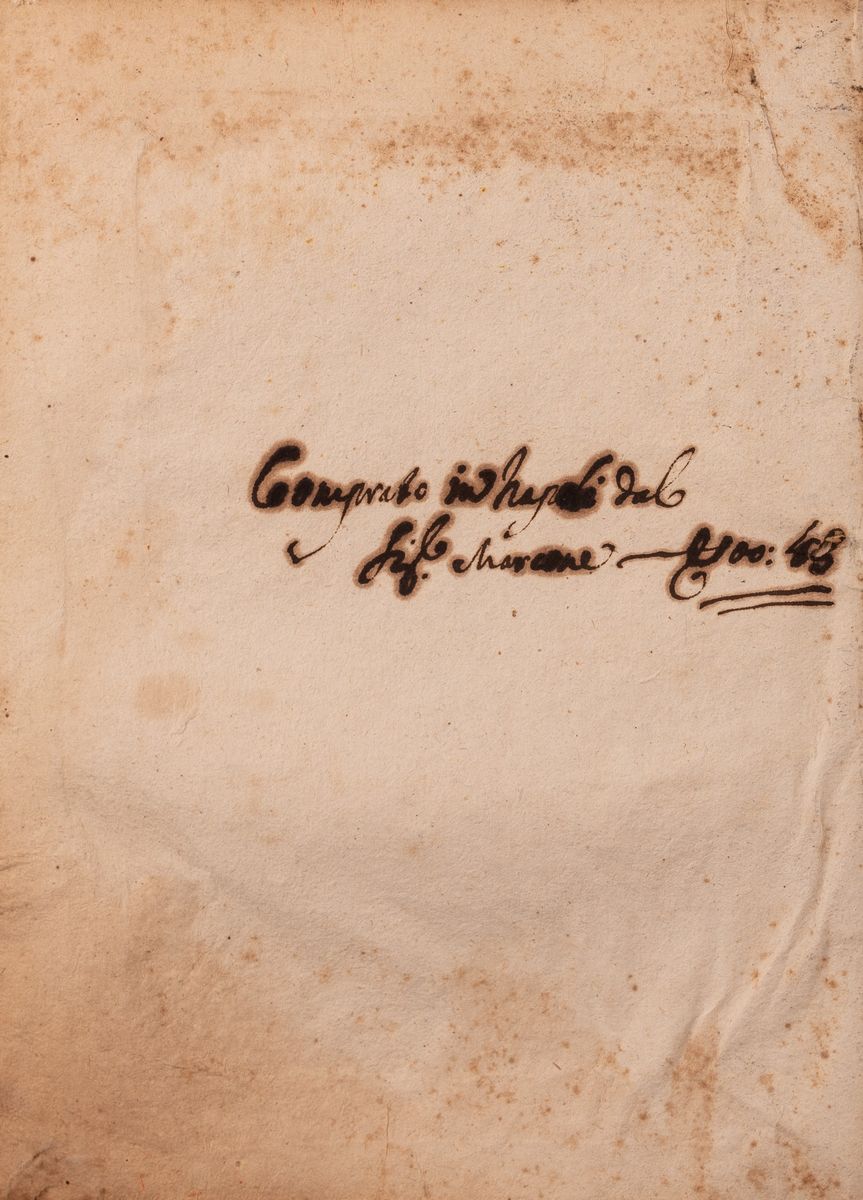 Comprato in Napoli dal
Sig.r Marcone —